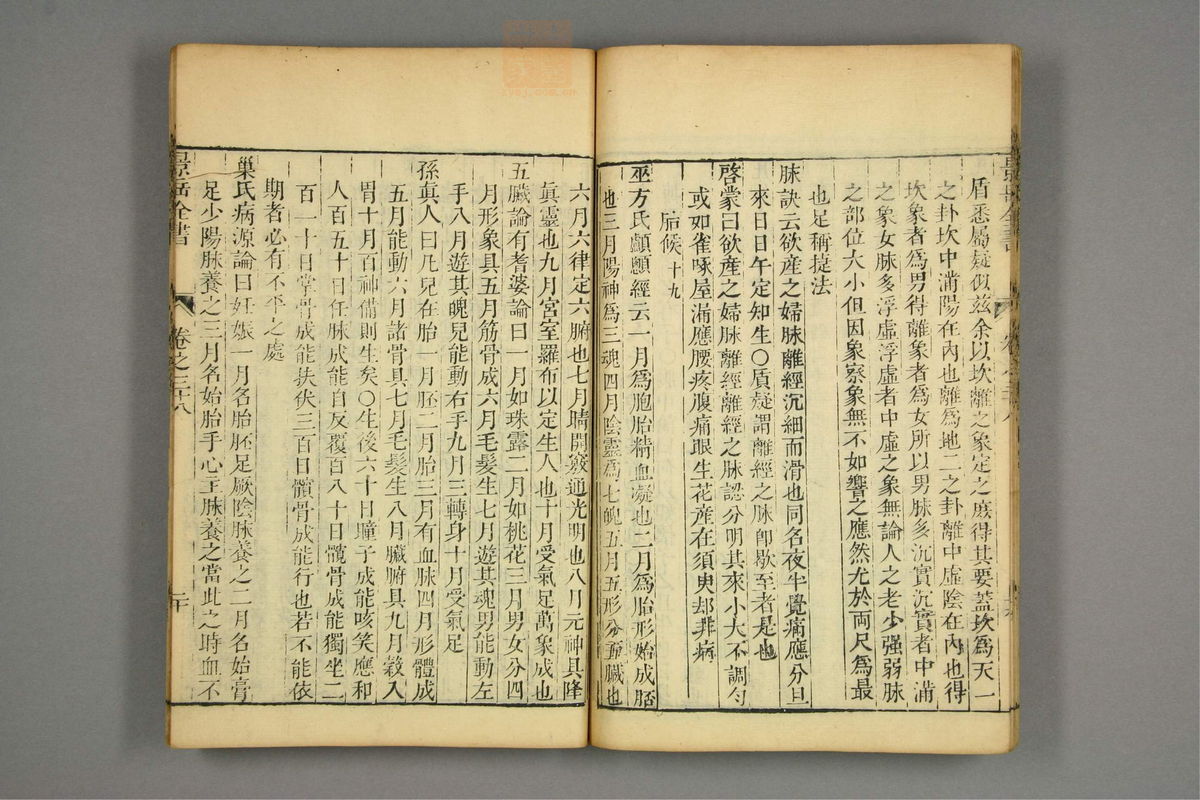 盾悉屬疑似茲余以坎離之象定之庶得其要蓋坎爲天一
之卦坎中滿陽在內也離爲地二之卦離中虛陰在內也得
坎象者爲男得離象者爲女所以男脉多沉實沉實者中滿
之象女脉多浮虛浮虛者中虛之象無論人之老少强弱脉
之部位大小但因象察象無不如響之應然尤於兩尺爲最
也足稱捷法
脉訣云欲產之婦脉離經沉細而滑也同名夜半覺痛應分旦
來日日午定知生○質疑謂離經之脉卽歇至者是也
啓蒙曰欲產之婦脉離經離經之脉認分明其來小大不調勻
或如雀啄屋漏應腰疼腹痛眼生花產在須臾却非病
胎候十九
巫方氏顱顖經云一月爲胞胎精血凝也二月爲胎形始成胚
也三月陽神爲三魂四月陰靈爲七魄五月五形分五臟也
六月六律定六腑也七月睛開竅通光明也八月元神具降
眞靈也九月宮室羅布以定生人也十月受氣足萬象成也
五臟論有耆婆論曰一月如珠露二月如桃花三月男女分四
月形象具五月筋骨成六月毛髮生七月遊其魂男能動左
手八月遊其魄兒能動右手九月三轉身十月受氣足
孫眞人曰凡兒在胎一月胚二月胎三月有血脉四月形體成
五月能動六月諸骨具七月毛髮生八月臟腑具九月穀入
胃十月百神備則生矣○生後六十日瞳子成能咳笑應和
人百五十日任脉成能自反覆百八十日髖骨成能獨坐二
百一十日掌骨成能扶伏三百日髕骨成能行也若不能依
期者必有不平之處
巢氏病源論曰妊娠一月名胎胚足厥陰脉養之二月名始膏
足少陽脉養之三月名始胎手心主脉養之當此之時血不
景岳全書
卷之三十八
二十